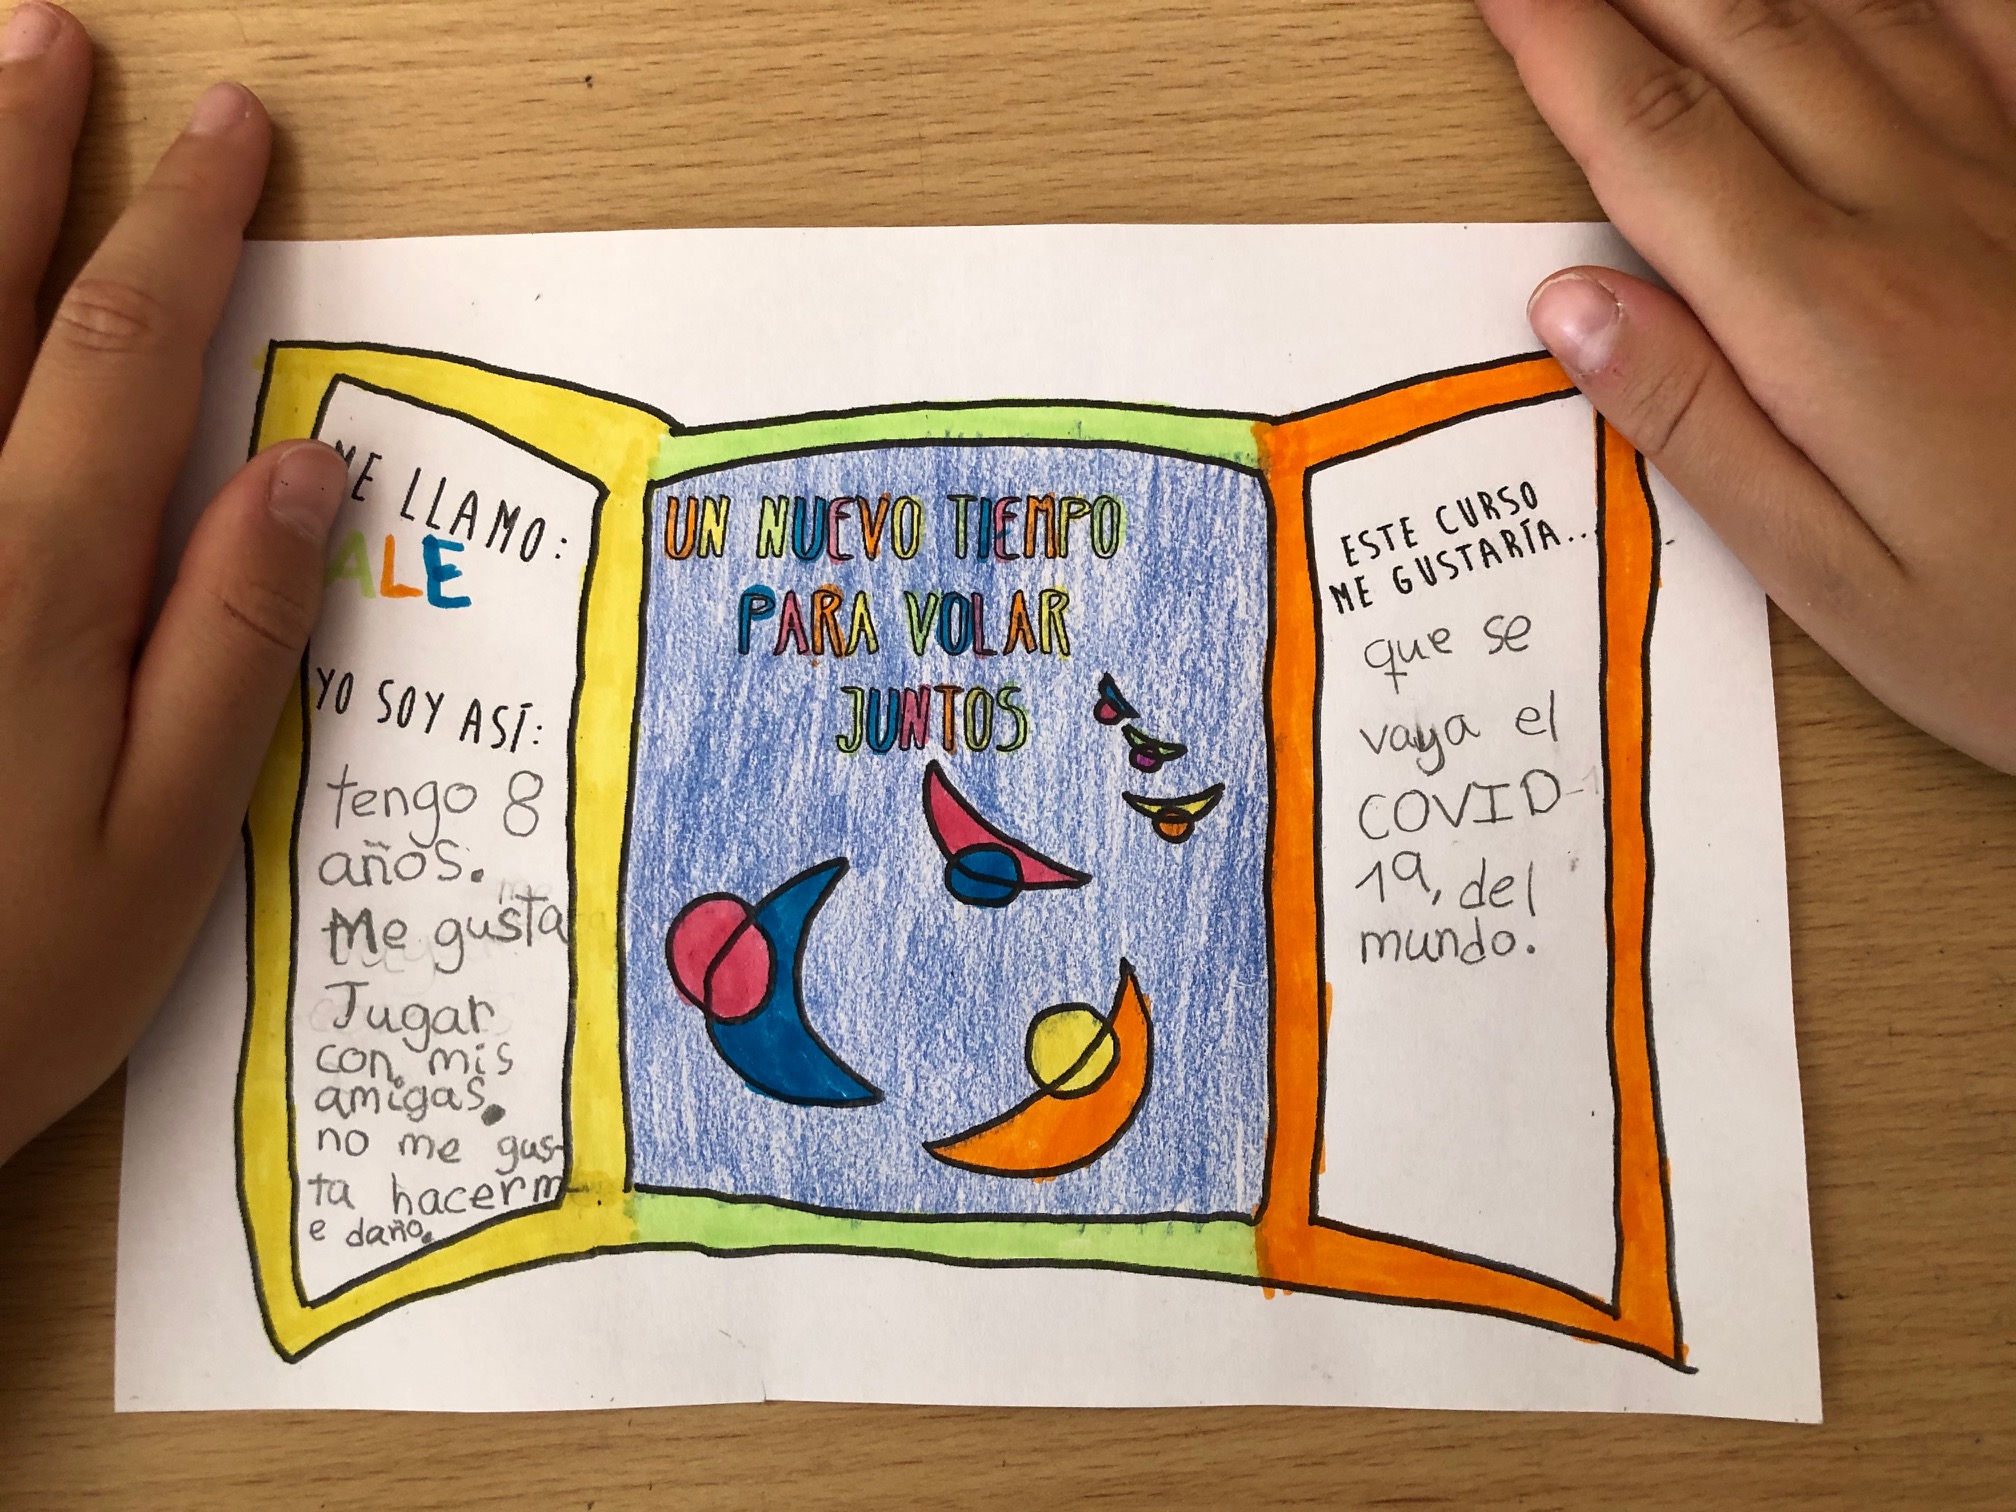 ME LLAMO:
ALE
YO SOY ASÍ:
tengo 8
años.
Me gusta
Jugar
con mis
amigas.
no me gus-
ta hacerm-
e daño.
UN NUEVO TIEMPO
PARA VOLAR
JUNTOS
ESTE CURSO
ME GUSTARÍA...
que se
vaya el
COVID-
19, del
mundo.